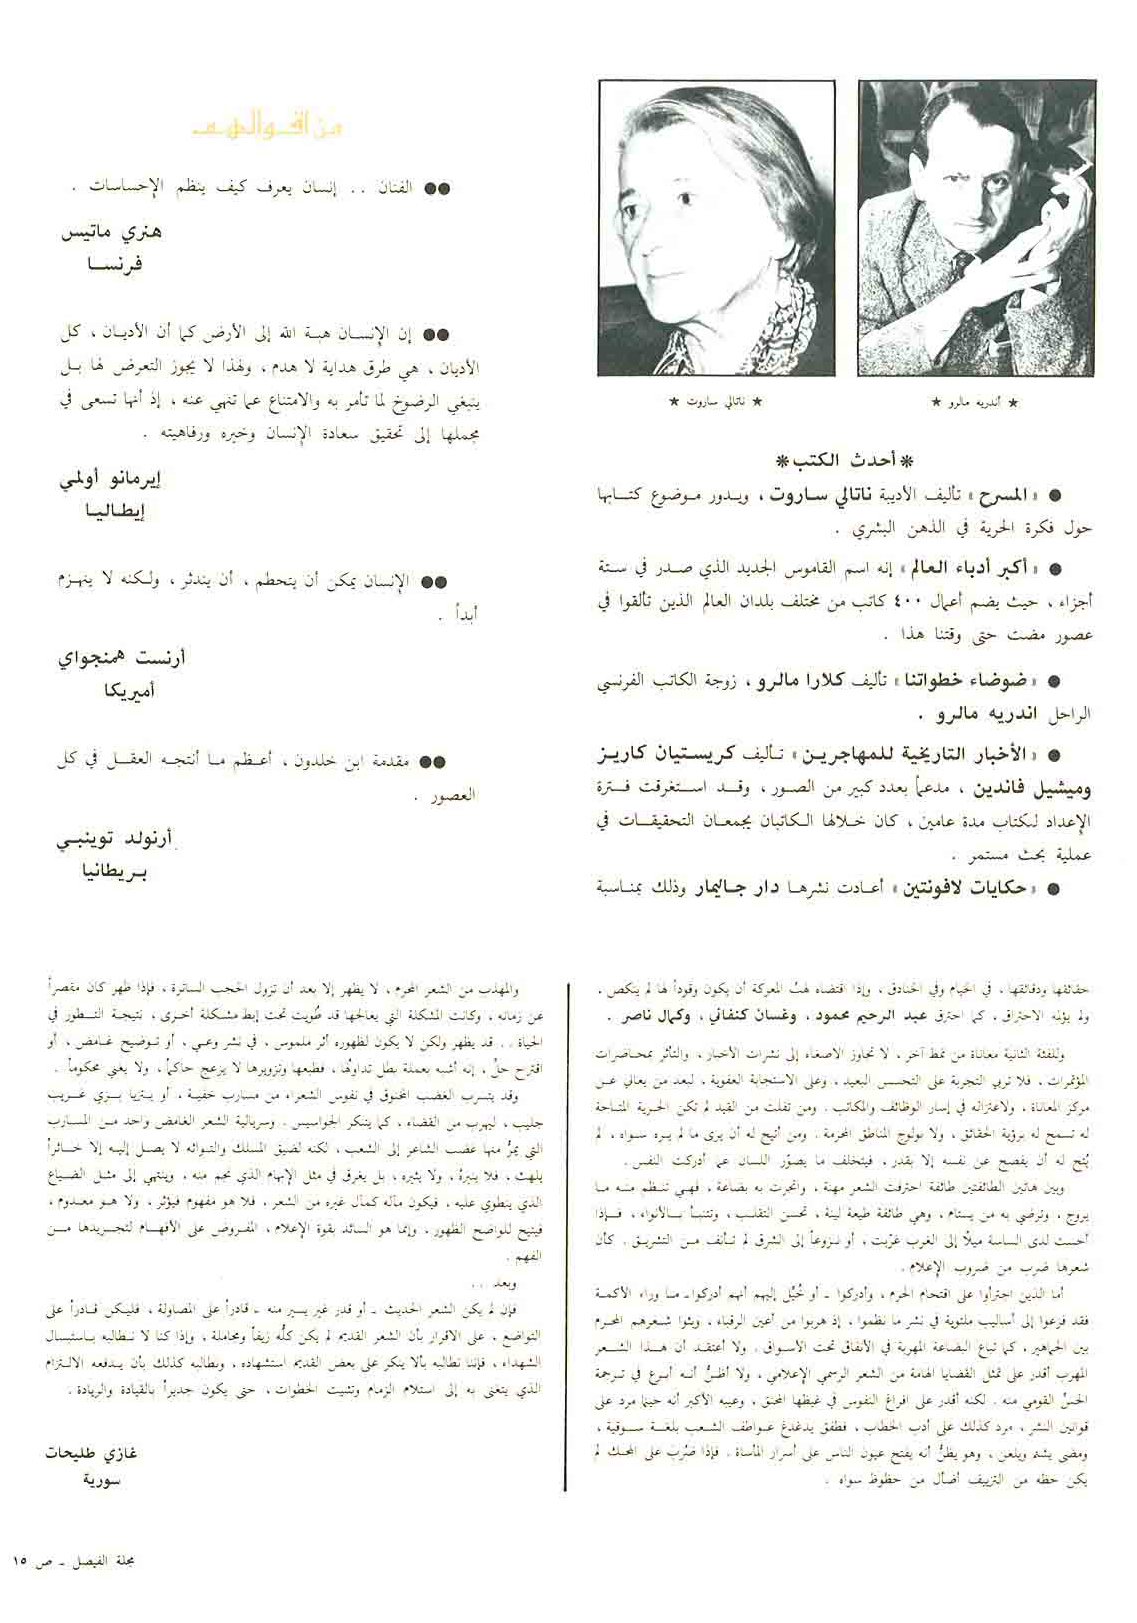 ★ أندريه مالرو ★
★ ناتالي ساروت ★
* أحدث الكتب *
● « المسرح » تأليف الأديبة ناتالي ساروت ، ويدور موضوع كتابها
حول فكرة الحرية في الذهن البشري .
● « أكبر أدباء العالم » إنه اسم القاموس الجديد الذي صدر في ستة
أجزاء ، حيث يضم أعمال ٤٠٠ كاتب من مختلف بلدان العالم الذين تألقوا في
عصور مضت حتى وقتنا هذا .
● « ضوضاء خطواتنا » تأليف كلارا مالرو ، زوجة الكاتب الفرنسي
الراحل اندريه مالرو .
● « الأخبار التاريخية للمهاجرين » تأليف كريستيان كاريز
وميشيل فاندين ، مدعماً بعدد كبير من الصور ، وقد استغرقت فترة
الإعداد لكتاب مدة عامين ، كان خلالها الكاتبان يجمعان التحقيقات في
عملية بحث مستمر .
● « حكايات لافونتين » أعادت نشرها دار جاليمار وذلك بمناسبة
من اقوالهم
●● الفنان .. إنسان يعرف كيف ينظم الإحساسات .
هنري ماتيس
فرنسا
●● إن الإنسان هبة الله إلى الأرض كما أن الأديان ، كل
الأديان ، هي طرق هداية لا هدم ، ولهذا لا يجوز التعرض لها بل
ينبغي الرضوخ لما تأمر به والامتناع عما تنهي عنه ، إذ أنها تسعى في
مجملها إلى تحقيق سعادة الإنسان وخيره ورفاهيته .
إيرمانو أولمي
إيطاليا
●● الإنسان يمكن أن يتحطم ، أن يندثر ، ولكنه لا ينهزم
أبداً .
أرنست همنجواي
أميريكا
●● مقدمة ابن خلدون ، أعظم ما أنتجه العقل في كل
العصور .
أرنولد توينبي
بريطانيا
حقائقها ودقائقها ، في الخيام وفي الخنادق ، وإذا اقتضاه لهبُ المعركة أن يكون وقوداً لها لم ينكص ،
ولم يؤلمه الاحتراق ، كما احترق عبد الرحيم محمود ، وغسان كنفاني ، وكمال ناصر .
وللفئة الثانية معاناة من نمط آخر ، لا تجاوز الاصغاء إلى نشرات الأخبار ، والتأثر بمحاضرات
المؤتمرات ، فلا تربي التجربة على التحسس البعيد ، وعلى الاستجابة العفوية ، لبعد من يعاني عن
مركز المعاناة ، ولاعتزاله في إسار الوظائف والمكاتب . ومن تفلت من القيد لم تكن الحرية المتاحة
له تسمح له برؤية الحقائق ، ولا بولوج المناطق المحرمة . ومن أتيح له أن يرى ما لم يره سواه ، لم
يُتح له أن يفصح عن نفسه إلا بقدر ، فيتخلف ما يصوّر اللسان عما أدركت النفس .
وبين هاتين الطائفتين طائفة احترفت الشعر مهنة ، واتجرت به بضاعة ، فهي تنظم منه ما
يروج ، وترضي به من يستام ، وهي طائفة طيعة لينة ، تحسن التقلب ، وتتنبأ بالأنواء ، فإذا
أحست لدى الساسة ميلًا إلى الغرب غرّبت ، أو نزوعاً إلى الشرق لم تأنف من التشريق . كأن
شعرها ضرب من ضروب الإعلام .
أما الذين اجترأوا على اقتحام الحرم ، وأدركوا - أو خُيِّل إليهم أنهم أدركوا - ما وراء الأكمة
فقد فزعوا إلى أساليب ملتوية في نشر ما نظموا ، إذ هربوا من أعين الرقباء ، وبثوا شعرهم المحرم
بين الجماهير ، كما تباع البضاعة المهربة في الأنفاق تحت الأسواق . ولا أعتقد أن هذا الشعر
المهرب أقدر على تمثل القضايا الهامة من الشعر الرسمي الإعلامي ، ولا أظنُّ أنه أبرع في ترجمة
الحسِّ القومي منه . لكنه أقدر على افراغ النفوس في غيظها المحنق ، وعيبه الأكبر أنه حينما مرد على
قوانين النشر ، مرد كذلك على أدب الخطاب ، فطفق يدغدغ عواطف الشعب بلغة سوقية ،
ومضى يشتم ويلعن ، وهو يظنُّ أنه يفتح عيون الناس على أسرار المأساة . فإذا ضُرِبَ على المحك لم
يكن حظه من التزييف أضأل من حظوظ سواه .
والمهذب من الشعر المحرم ، لا يظهر إلا بعد أن تزول الحجب الساترة ، فإذا ظهر كان مقصراً
عن زمانه ، وكانت المشكلة التي يعالجها قد طُويت تحت إبط مشكلة أخرى ، نتيجة التطور في
الحياة .. قد يظهر ولكن لا يكون لظهوره أثر ملموس ، في نشر وعي ، أو توضيح غامض ، أو
اقتراح حلٍّ ، إنه أشبه بعملة بطل تداولها ، فطبعها وتزويرها لا يزعج حاكماً ، ولا يغني محكوماً .
وقد يتسرب الغضب المخنوق في نفوس الشعراء من مسارب خفية ، أو يتزيا بزي غريب
جليب ، ليهرب من القضاء ، كما يتنكر الجواسيس . وسريالية الشعر الغامض واحد من المسارب
التي يمرُّ منها غضب الشاعر إلى الشعب ، لكنه لضيق المسلك والتوائه لا يصل إليه إلا خائراً
يلهث ، فلا ينيرهُ ، ولا يثيره ، بل يغرق في مثل الإبهام الذي نجم منه ، وينتهي إلى مثل الضياع
الذي ينطوي عليه ، فيكون مآله كمآل غيره من الشعر . فلا هو مفهوم فيؤثر ، ولا هو معدوم ،
فيتيح للواضح الظهور ، وإنما هو السائد بقوة الإعلام ، المفروض على الأفهام لتجريدها من
الفهم .
وبعد ..
فإن لم يكن الشعر الحديث - أو قدر غير يسير منه - قادراً على المصاولة ، فليكن قادراً على
التواضع ، على الاقرار بأن الشعر القديم لم يكن كلُّه زيفاً ومجاملة ، وإذا كنا لا نطالبه باستبسال
الشهداء ، فإننا نطالبه بألا ينكر على بعض القديم استشهاده ، ونطالبه كذلك بأن يدفعه الالتزام
الذي يتغنى به إلى استلام الزمام وتثبيت الخطوات ، حتى يكون جديراً بالقيادة والريادة .
غازي طليحات
سورية
مجلة الفيصل ـ ص ١٥